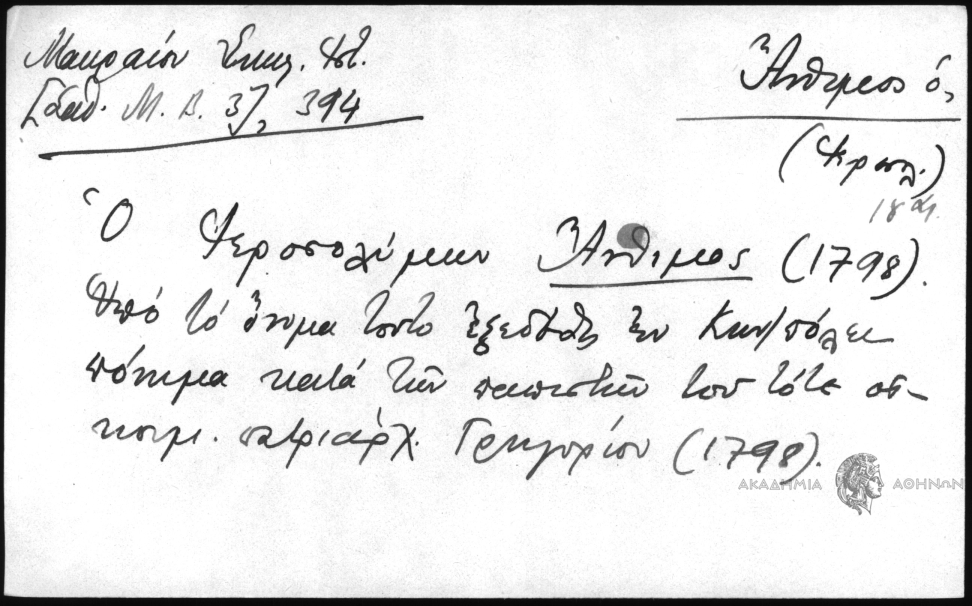 Μακραίου Ἐκκλ. Ἱστ.
Σάθα Μ. Β. 3), 394
Ἄνθιμος ὁ,
(Ἱεροσολ.)
18
Ὁ Ἱεροσολύμων Ἄνθιμος (1798).
Ὑπό τό ὄνομα τοῦτο ἐξεδόθη ἐν Κων/πόλει
πόνημα κατά τῶν παπιστῶν τοῦ τότε οἰ-
κουμ. πατριάρχ. Γρηγορίου (1798).
ΑΚΑΔΗΜΙΑ ΑΘΗΝΩΝ